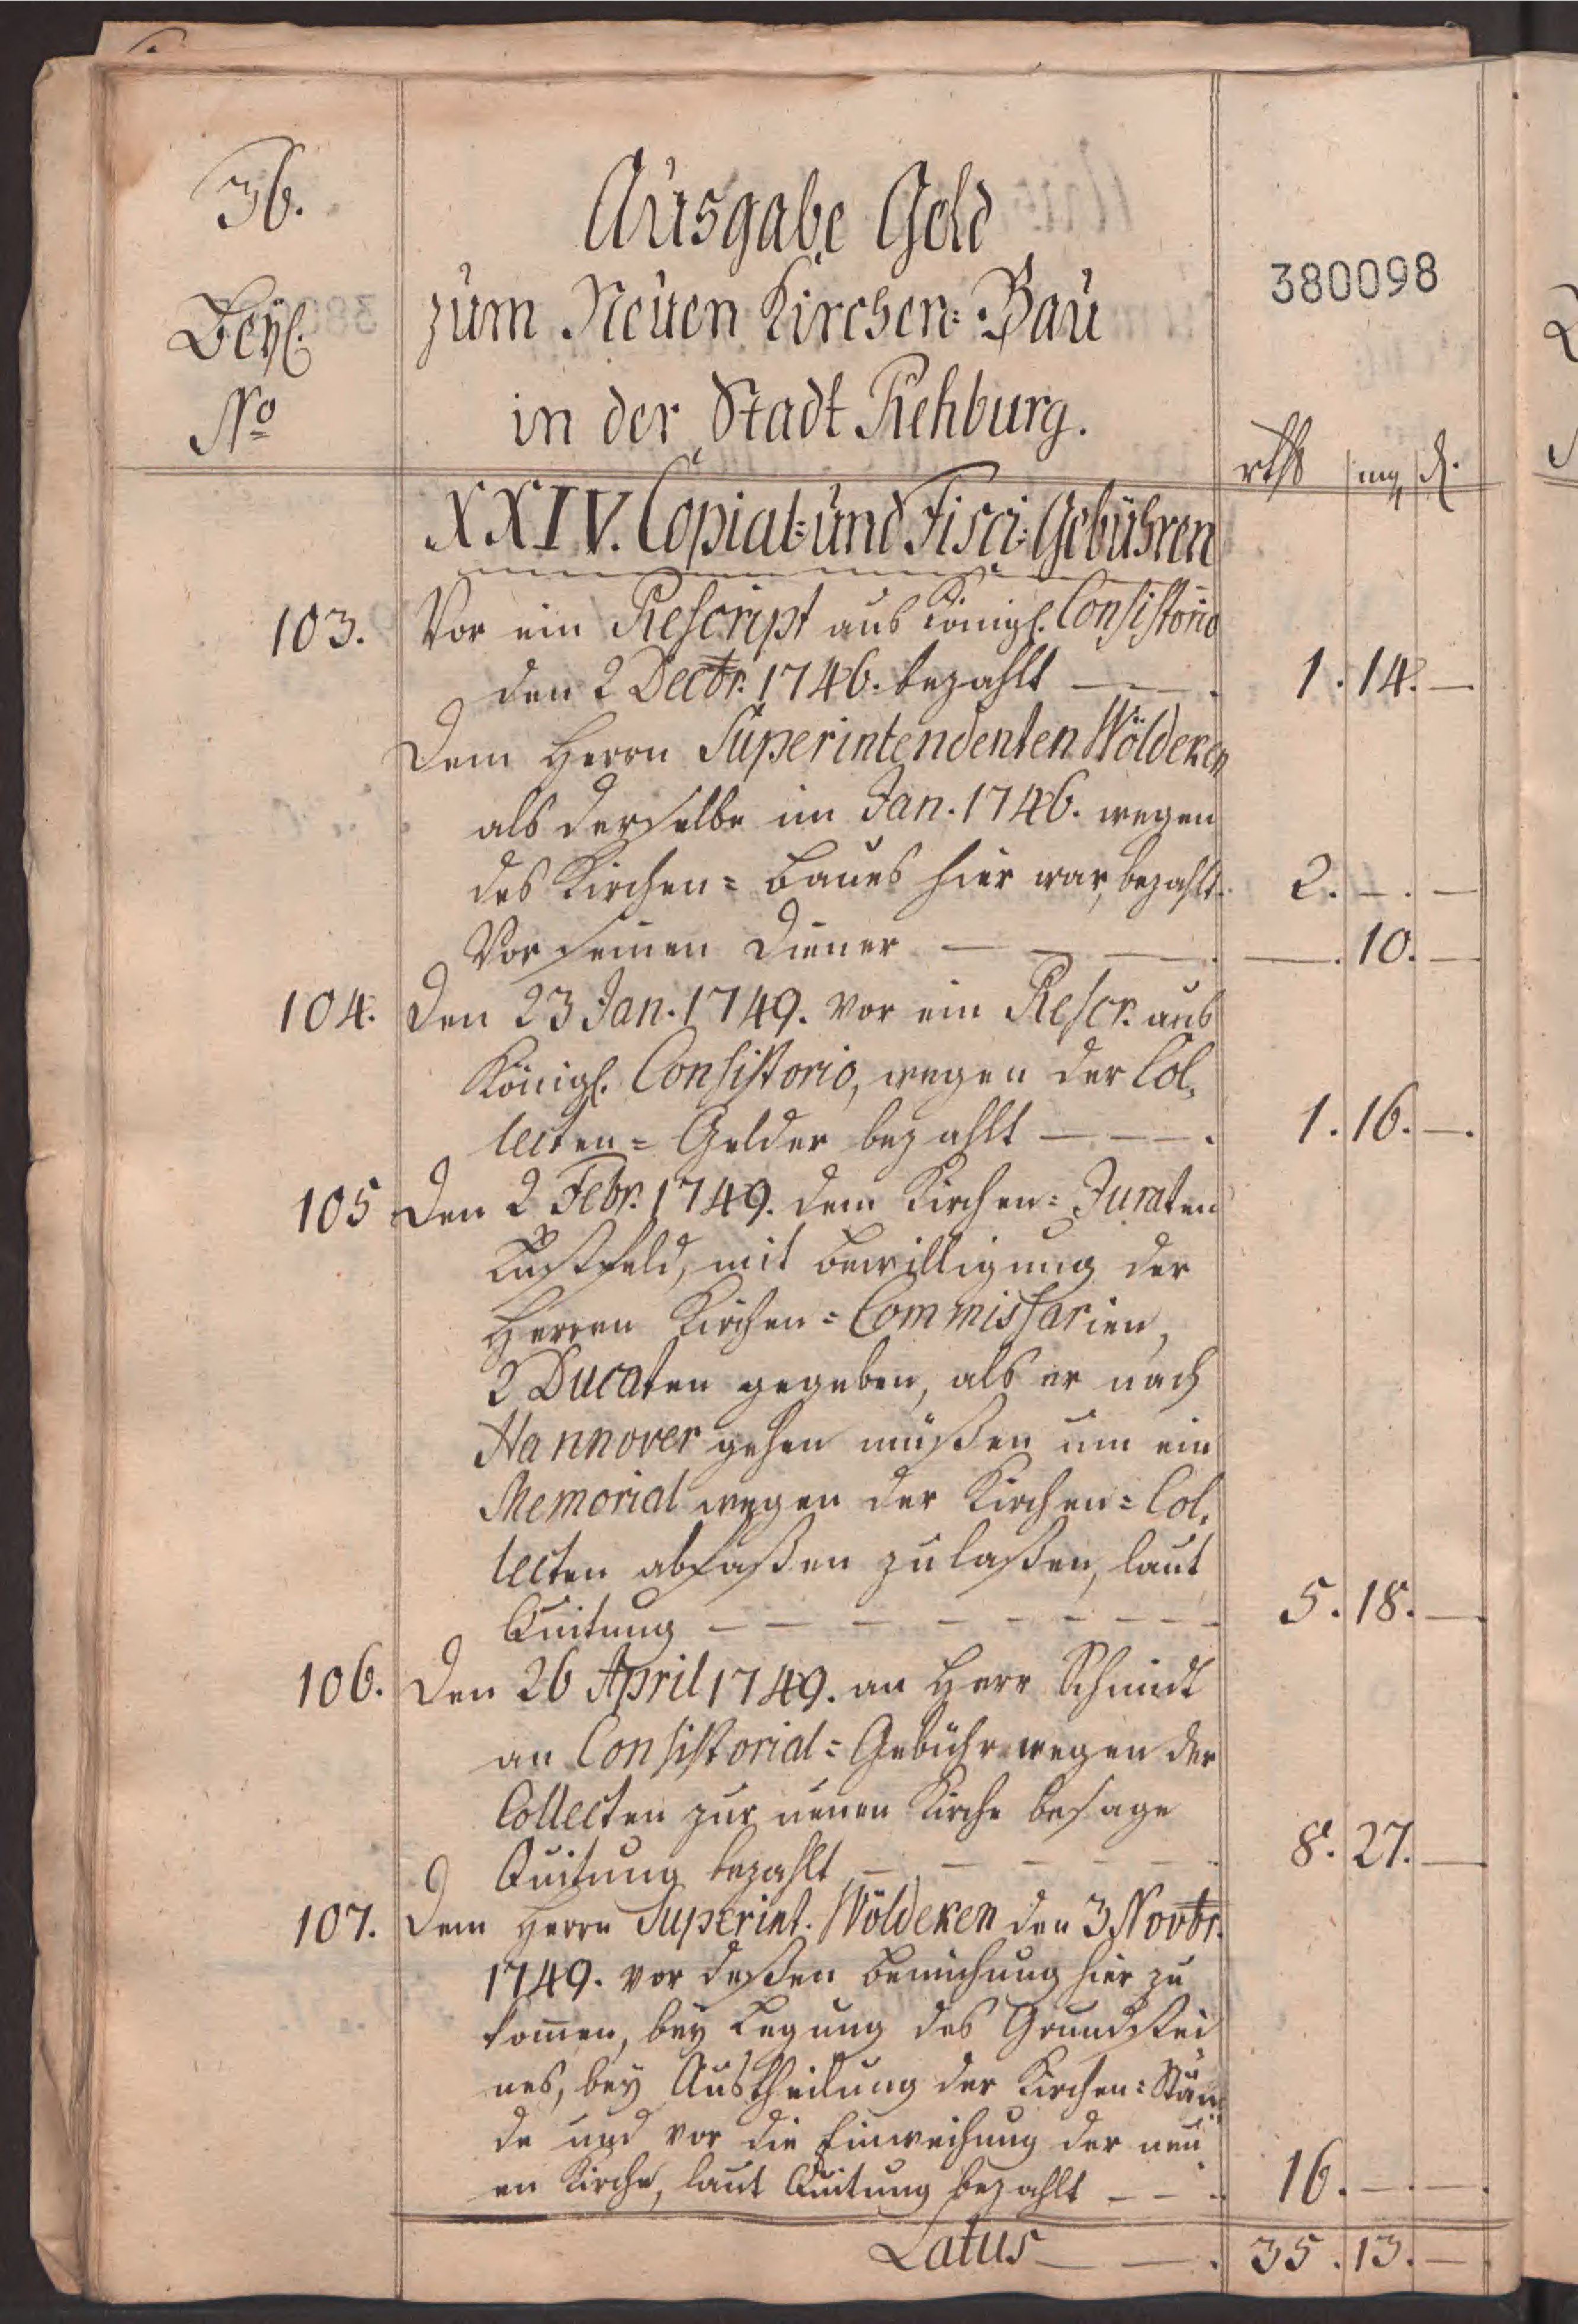 36.
Ausgabe Geld
380098
Beyl.
zum Neuen Kirchen-Bau
No
in der Stadt Rehburg.
rthl mg d.
XXIV. Copial- und Fisci-Gebühren
103. Vor ein Rescript aus Königl. Consistorio
den 2 Decbr. 1746. bezahlt — — . 1. 14. —
Dem Herrn Superintendenten Wöldeken
als derselbe im Jan. 1746. wegen
des Kirchen-Baues hier war, bezahlt. 2. —. —
Vor seinen Diener — — —. —. 10. —
104. Den 23 Jan. 1749. vor ein Rescr. aus
Königl. Consistorio, wegen der Col-
lecten-Gelder bezahlt — — —. 1. 16. —.
105 Den 2 Febr. 1749. dem Kirchen-Juraten
mit Bewilligung der
Herren Kirchen-Commissarien,
2 Ducaten gegeben, als er nach
Hannover gehen müßen um ein
Memorial wegen der Kirchen-Col-
lecten abfaßen zu laßen, laut
Quitung — — — — — — — 5. 18. —
106. Den 26 April 1749. an Herr Schmidt
an Consistorial-Gebühr wegen der
Collecten zur neuen Kirche besage
Quitung bezahlt — — — — —. 8. 27. —
107. Dem Herrn Superint. Wöldeken den 3 Novbr.
1749. vor deßen Bemühung hier zu
kom̄en, bey Legung des Grundstei
nes, bey Austheilung der Kirchen-Stän-
de und vor die Einweihung der neu-
en Kirche, laut Quitung bezahlt — — . 16. —. —.
Latus — —. 35. 13. —